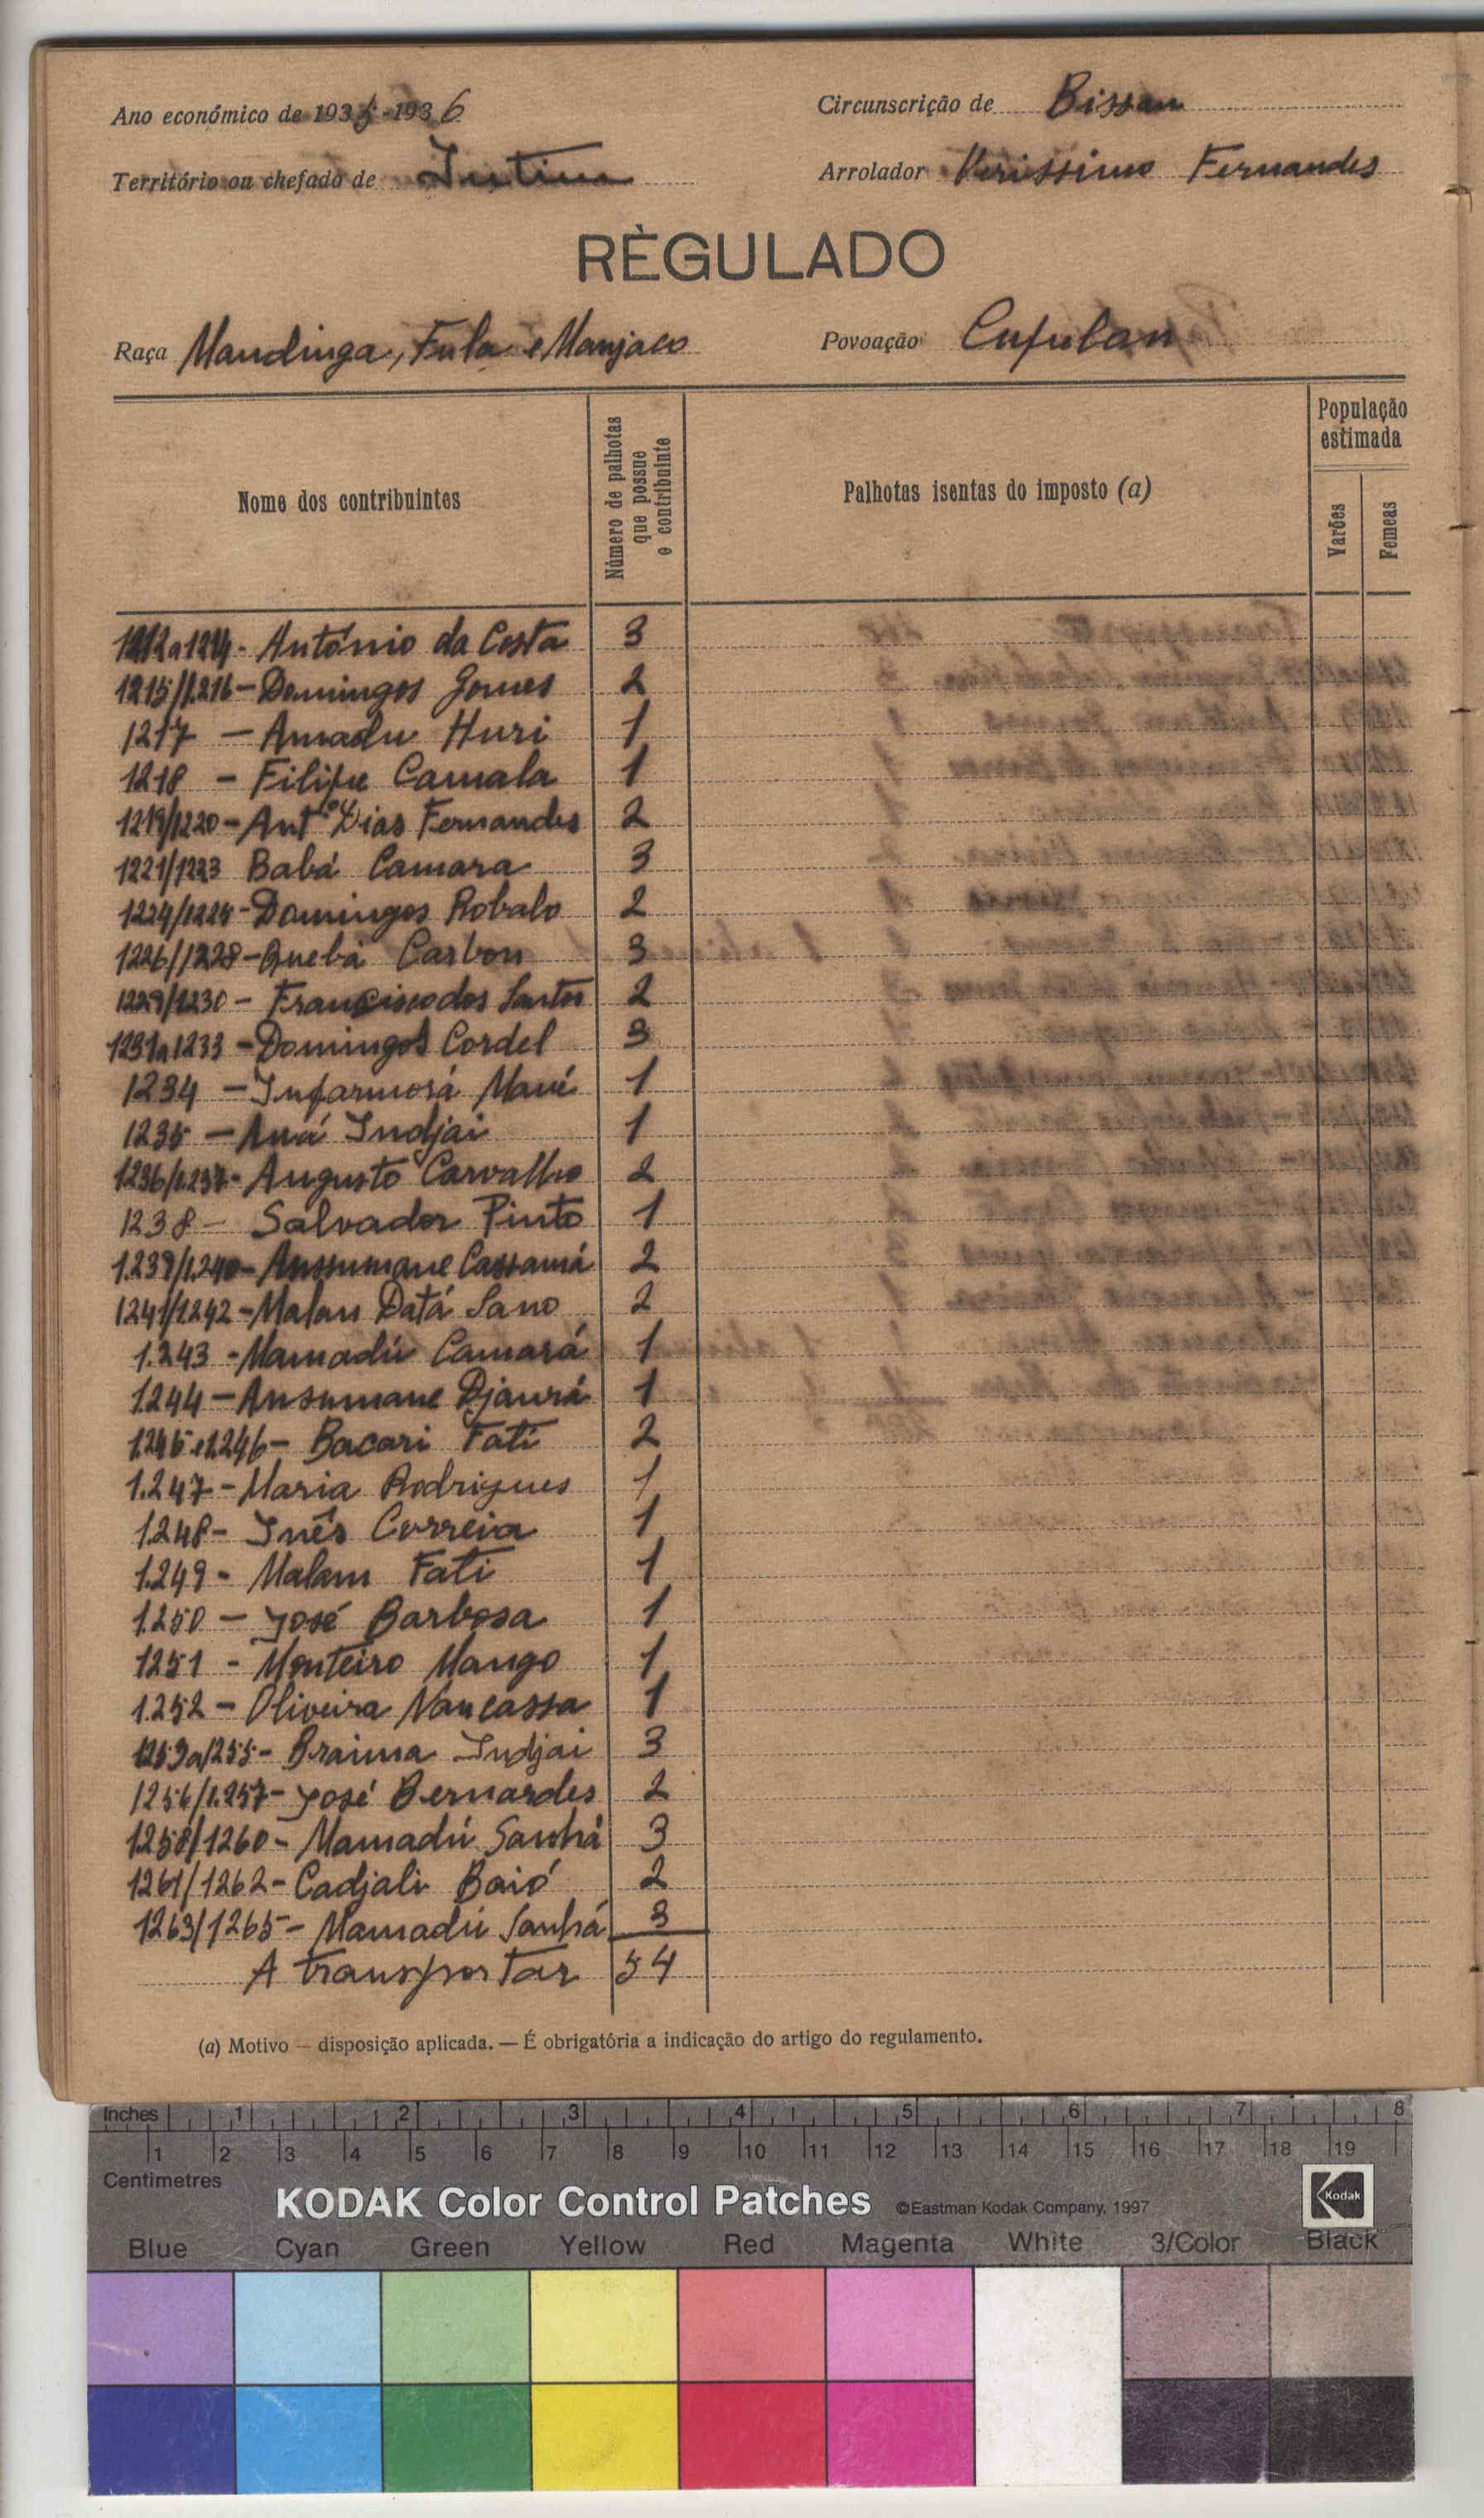 Ano económico de 1935-1936
Circunscrição de Bissau
Território ou chefado de Intim
Arrolador Verissimo Fernandes
RÈGULADO
Raça Mandinga, Fula e Manjaco
Povoação Cupulan
Nome dos contribuintes
Número de palhotas
que possue
o contribuinte
Palhotas isentas do imposto (a)
População
estimada
Varões
Femeas
1212a1214- António da Costa 3
1215/1.216- Domingos Gomes 2
1217 - Amadu Huri 1
1218 - Filipe Camala 1
1219/1220- Antº Dias Fernandes 2
1221/1223 Babá Camara 3
1224/1225- Domingos Robalo 2
1226/1228- Quebá Carbon 3
1229/1230 - Francisco dos Santos 2
1231a1233 - Domingos Cordel 3
1234 - Infarmorá Mané 1
1235 - Aná Indjai 1
1236/1.237- Augusto Carvalho 2
1238 - Salvador Pinto 1
1.239/1.240- Anssumane Cassamá 2
1241/1.242- Malan Datá Sano 2
1.243 - Mamadú Camará 1
1.244 - Ansumane Djaurá 1
1.245 e 1.246- Bacari Fati 2
1.247- Maria Rodrigues 1
1.248- Inês Correia 1
1.249- Malam Fati 1
1.250 - José Barbosa 1
1251 - Monteiro Mango 1
1.252 - Oliveira Nancassa 1
1253a1255- Braima Indjai 3
1256/1.257- José Bernardes 2
1.258/1260- Mamadú Sanhá 3
1261/1262- Cadjali Baió 2
1263/1265- Mamadú Sanhá 3
A transportar 54
(a) Motivo — disposição aplicada. — É obrigatória a indicação do artigo do regulamento.
Inches 1 2 3 4 5 6 7 8
1 2 3 4 5 6 7 8 9 10 11 12 13 14 15 16 17 18 19
Centimetres
KODAK Color Control Patches ©Eastman Kodak Company, 1997 Kodak
Blue Cyan Green Yellow Red Magenta White 3/Color Black